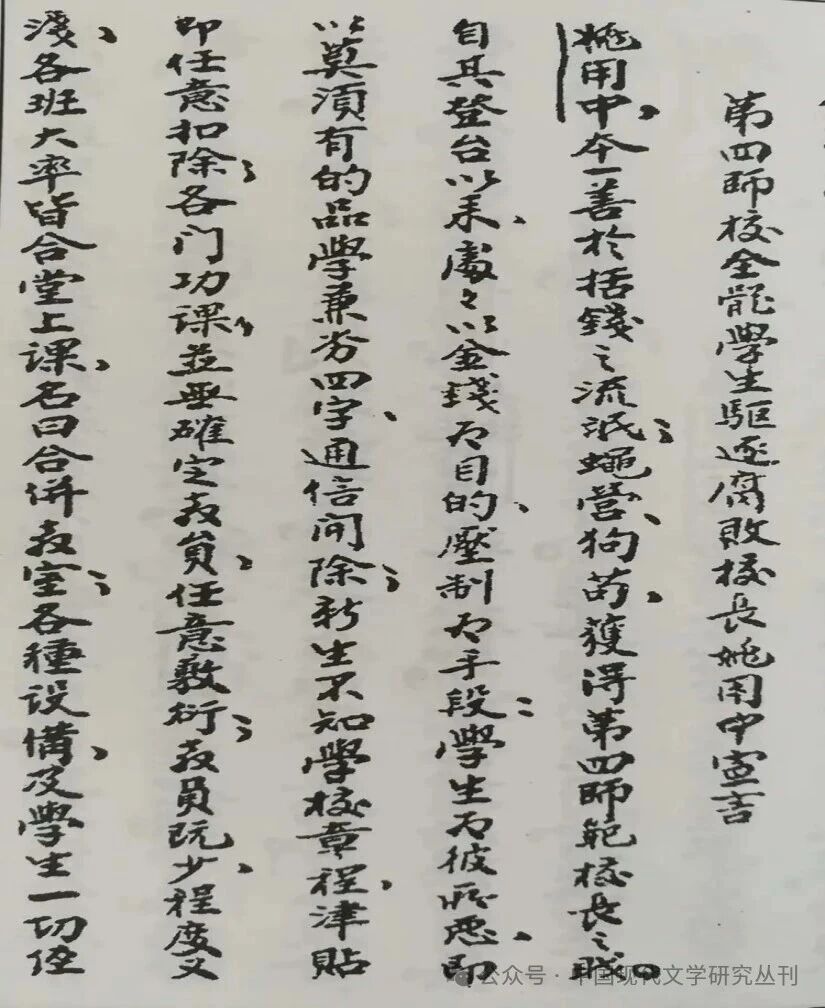 第四師校全體學生驅逐腐敗校長姚用中宣言
姚用中、本一善於括錢之流氓；蠅營、狗苟、獲得第四師範校長之職。
自其登台以来、處々以金錢为目的、壓制为手段；學生为彼所惡、即
以莫須有的品學兼劣四字、通信開除；新生不知學校章程、津貼
即任意扣除；各门功课、並無確定教員、任意敷衍；教員既少、程度又
淺、各班大率皆合堂上课、名曰合併教室；各種设備、及學生一切住
公众号·中国现代文学研究丛刊